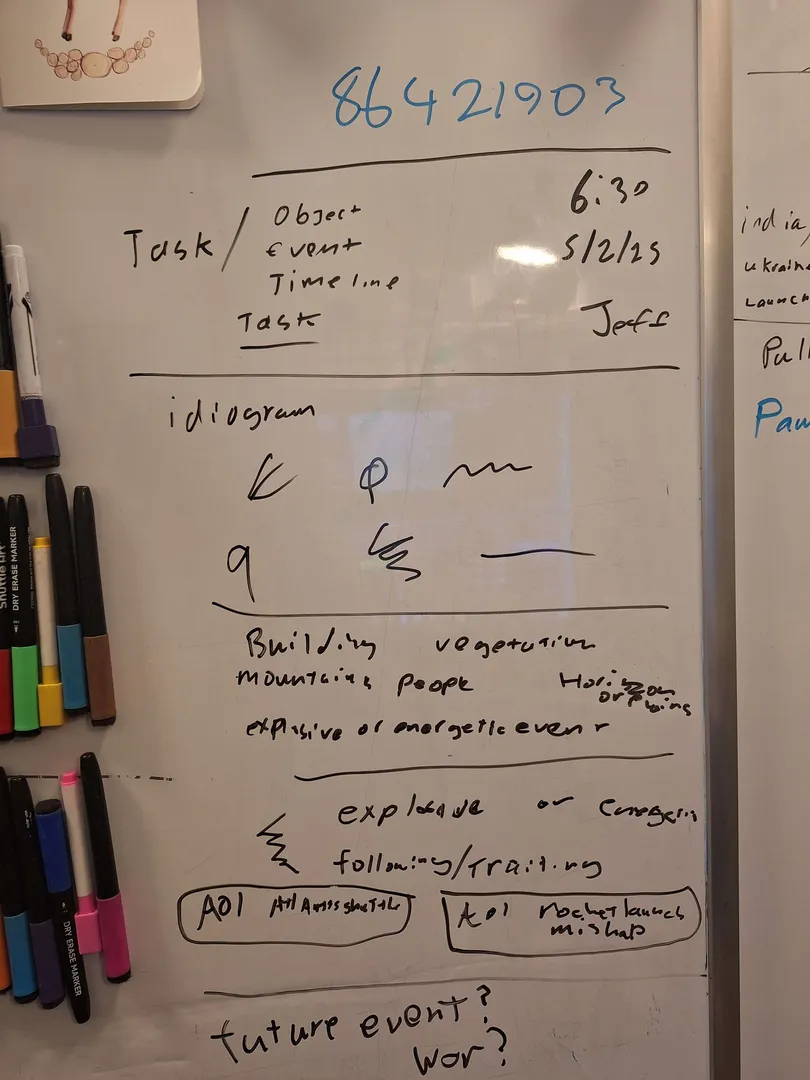 86421903
Task/
Object
Event
Timeline
Task
6:30
5/2/25
Jeff
idiogram
Building vegetation
mountains people
Horizon
or
explosive or energetic event
explosive or
following/
AOI
AOI rocket launch
mishap
future event?
wor?
india/
ukraine
Launch
Pull
DRY ERASE MARKER
DRY ERASE MARKER